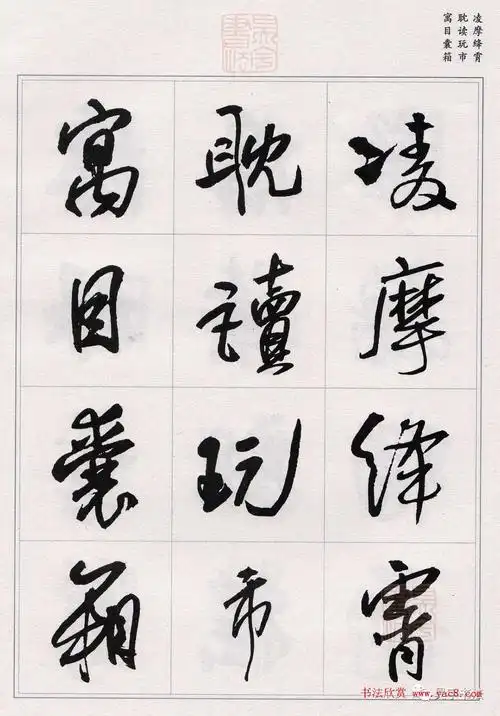 凌摩绛霄
耽读玩市
寓目囊箱
凌摩绛霄
耽讀玩市
寓目囊箱
书法欣赏 www.yac8.com